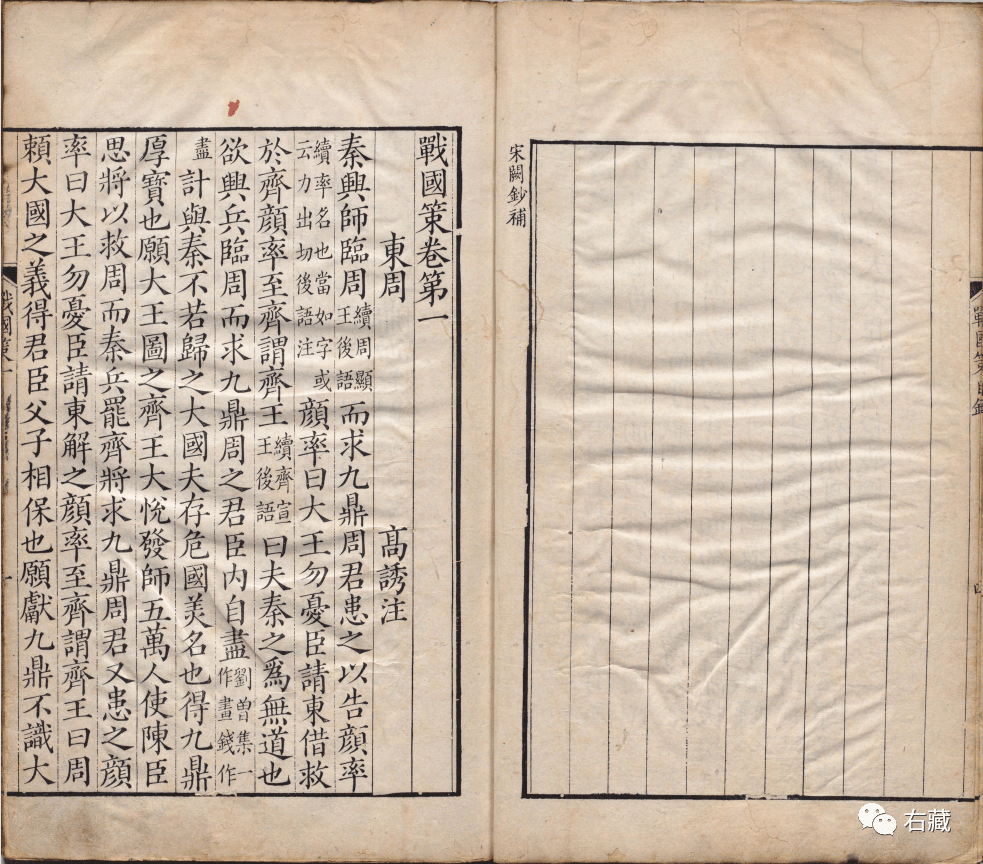 戰國策目錄
宋闕鈔補
戰國策卷第一
東周　高誘注
秦興師臨周續周顯王後語而求九鼎周君患之以告顔率
續率名也當如字或云力出切後語注顔率曰大王勿憂臣請東借救
於齊顔率至齊謂齊王續齊宣王後語曰夫秦之爲無道也
欲興兵臨周而求九鼎周之君臣内自盡劉曾集一作畫錢作
盡計與秦不若歸之大國夫存危國美名也得九鼎
厚寶也願大王圖之齊王大悅發師五萬人使陳臣
思將以救周而秦兵罷齊將求九鼎周君又患之顔
率曰大王勿憂臣請東解之顔率至齊謂齊王曰周
賴大國之義得君臣父子相保也願獻九鼎不識大
戰國策一
一
右藏